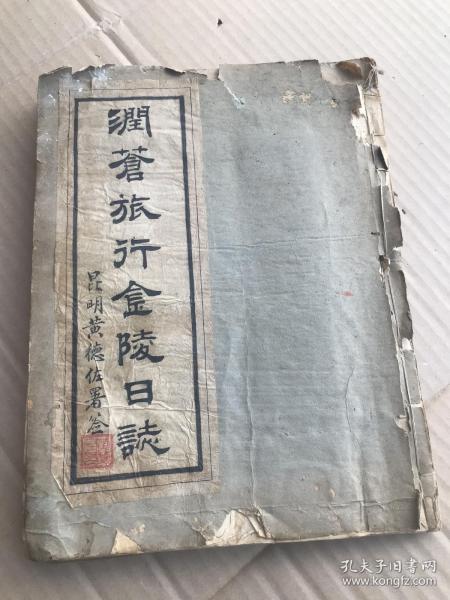 潤蒼旅行金陵日誌
昆明黄德佐署签
孔夫子旧书网
www.kongfz.com